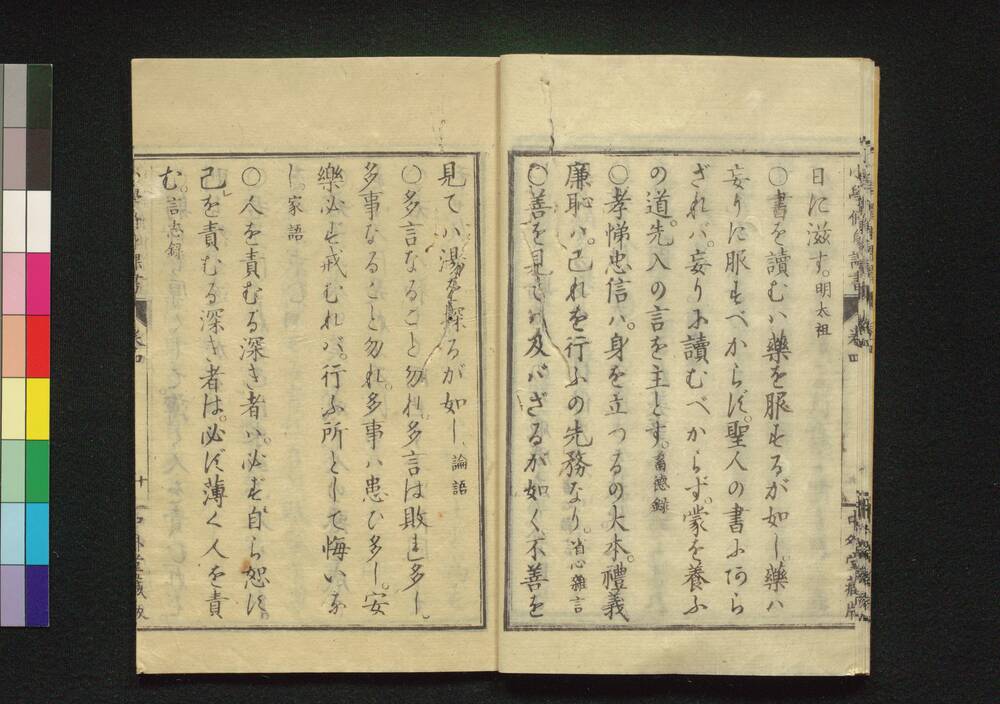 日に滋す。明太祖
○書を讀むハ藥を服するが如し。藥ハ
妄りに服すべからず。聖人の書にあら
ざれバ。妄りに讀むべからず。蒙を養ふ
の道。先入の言を主とす。畜德録
○孝悌忠信ハ。身を立つるの大本。禮義
廉恥ハ。己れを行ふの先務なり。省心雜言
○善を見てハ及バざるが如く不善を
見てハ湯を探るが如し、論語
○多言なること勿れ。多言は敗れ多し。
多事なること勿れ。多事ハ患ひ多し。安
樂必ず戒むれバ。行ふ所として悔いな
し。家語
○人を責むる深き者ハ。必ず自ら恕す
己を責むる深き者は。必ず薄く人を責
む。言志録
卷四
十